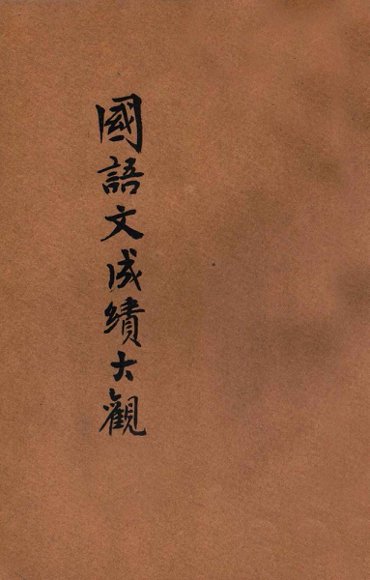 國語文成績大觀